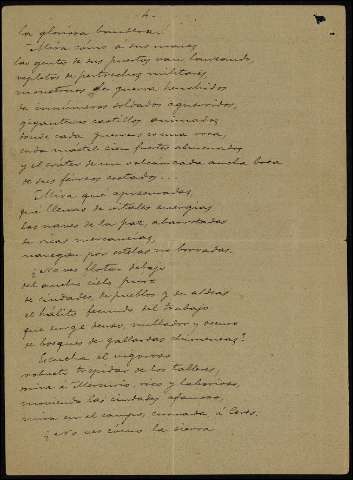 4.
la gloriosa bandera.
Mira cómo a sus mares
las gentes de sus puertos van lanzando,
repletos de pertrechos militares,
monstruos de guerra, henchidos
de innúmeros soldados aguerridos,
gigantescos castillos animados
donde cada es una roca,
cada mástil cien fuertes almenados
y el cráter de un volcán cada ancha boca
de sus férreos costados...
Mira qué apresuradas,
qué llenas de vitales energías
las naves de la paz, abarrotadas
de ricas mercancías,
navegan por estelas no borradas.
¿No ves flotar debajo
del ancho cielo puro
de ciudades, de pueblos y de aldeas
el hálito fecundo del trabajo
que surge denso, y oscuro
de bosques de gallardas chimeneas?
Escucha el vigoroso
robusto trepidar de los talleres,
mira a Mercurio, rico y laborioso,
moviendo las ciudades afanoso,
mira en el campo, coronada á Ceres.
¿No ves cómo la sierra